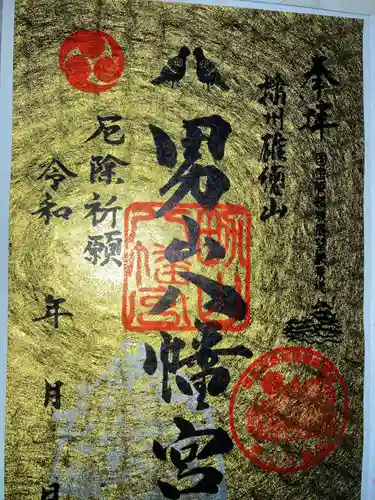 奉拝
播州雄徳山
男山八幡宮
厄除祈願
令和
年
月
日